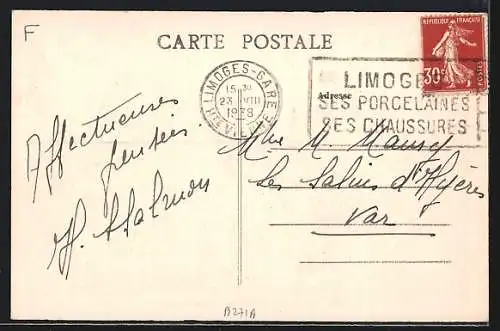 F
CARTE POSTALE
RÉPUBLIQUE FRANÇAISE
30c
POSTES
LIMOGES-GARE
15 30
23 VIII
1939
HTE VIENNE
LIMOGES
SES PORCELAINES
SES CHAUSSURES
Adresse
Affectueuses
pensées
Mme M.
Les Salins d'Hyères
Var
B271A